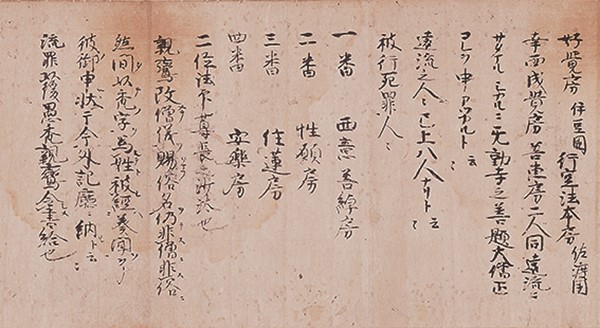 好覺房 伊豆國 行空法本房 佐渡國
幸西成覺房 善恵房二人同遠流ニ
サタマル シカルニ无動寺之善題大僧正
コレヲ申アツカルト云々
遠流之人々已上八人ナリト云々
被行死罪人々
一番 西意善綽房
二番 性願房
三番 住蓮房
四番 安樂房
二位法印尊長之沙汰也
親鸞改僧儀賜俗名仍非僧非俗
然間以禿字為姓被經奏聞了
彼御申状于今外記廳ニ納ト云々
流罪以後愚禿親鸞令書給也